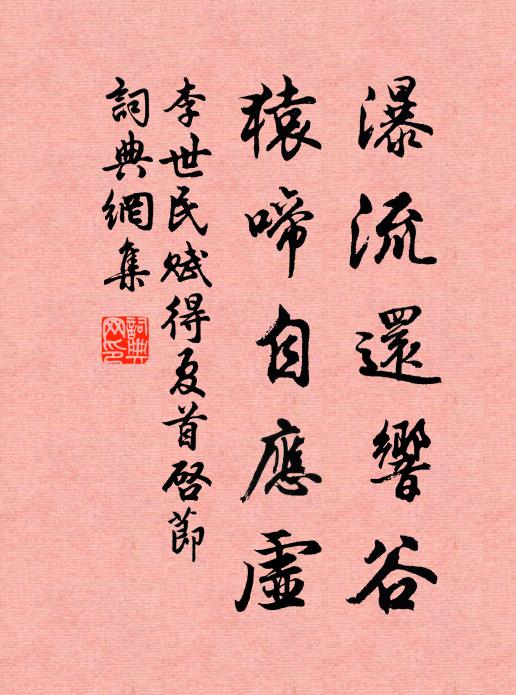 瀑流還響谷
猿啼自應虛
李世民賦得夏首啓節
詞典網集
詞典
网印